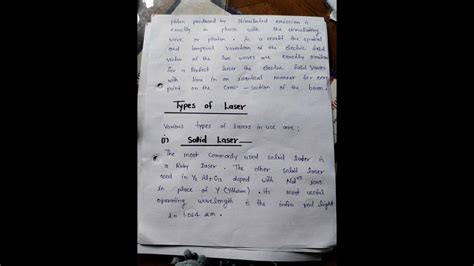 photon produced by stimulated emission is
exactly in phase with the stimulating
wave or photon. As a result the spatial
and temporal variation of the electric field
vector of the two waves are exactly similar
for a Perfect laser the electric field varies
with time in an identical manner for every
point on the Cross-section of the beam.
Types of Laser
Various types of lasers in use are;
(i) Solid Laser
The most commonly used solid laser is
a Ruby laser. The other solid laser
used in Y2 Al5 O12 doped with Nd+3 ions
in place of Y (Yttrium). Its most useful
operating wavelength is the infra red light
in 1.064 um.